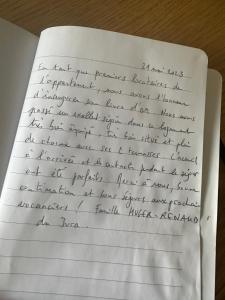 31 mai 2023
En tant que premiers locataires de
l'appartement, nous avons l'honneur
d'inaugurer son livre d'or. Nous avons
passé un excellent séjour dans ce logement
très bien équipé, très bien situé et plein
de charme avec ses 2 terrasses. L'accueil
à l'arrivée et les contacts pendant le séjour
ont été parfaits. Merci à vous, bonne
continuation et bons séjours aux prochains
vacanciers ! Famille HUGER-RENAUD
du Jura